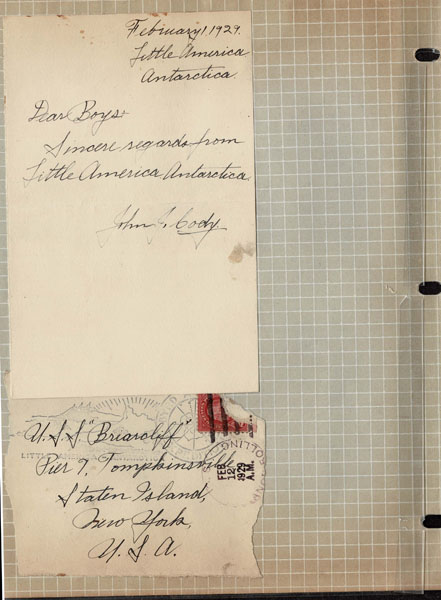 February 1, 1929.
Little America
Antarctica
Dear Boys:
Sincere regards from
Little America Antarctica
John J. Cody
U.S.S. "Briarcliff"
Pier 7, Tompkinsville
Staten Island,
New York,
U.S.A.
FEB
12
1929
A.M.